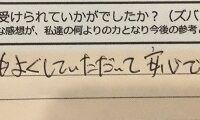 受けられていかがでしたか？（ズバ
な感想が、私達の何よりの力となり今後の参考と
よくしていただいて安心で